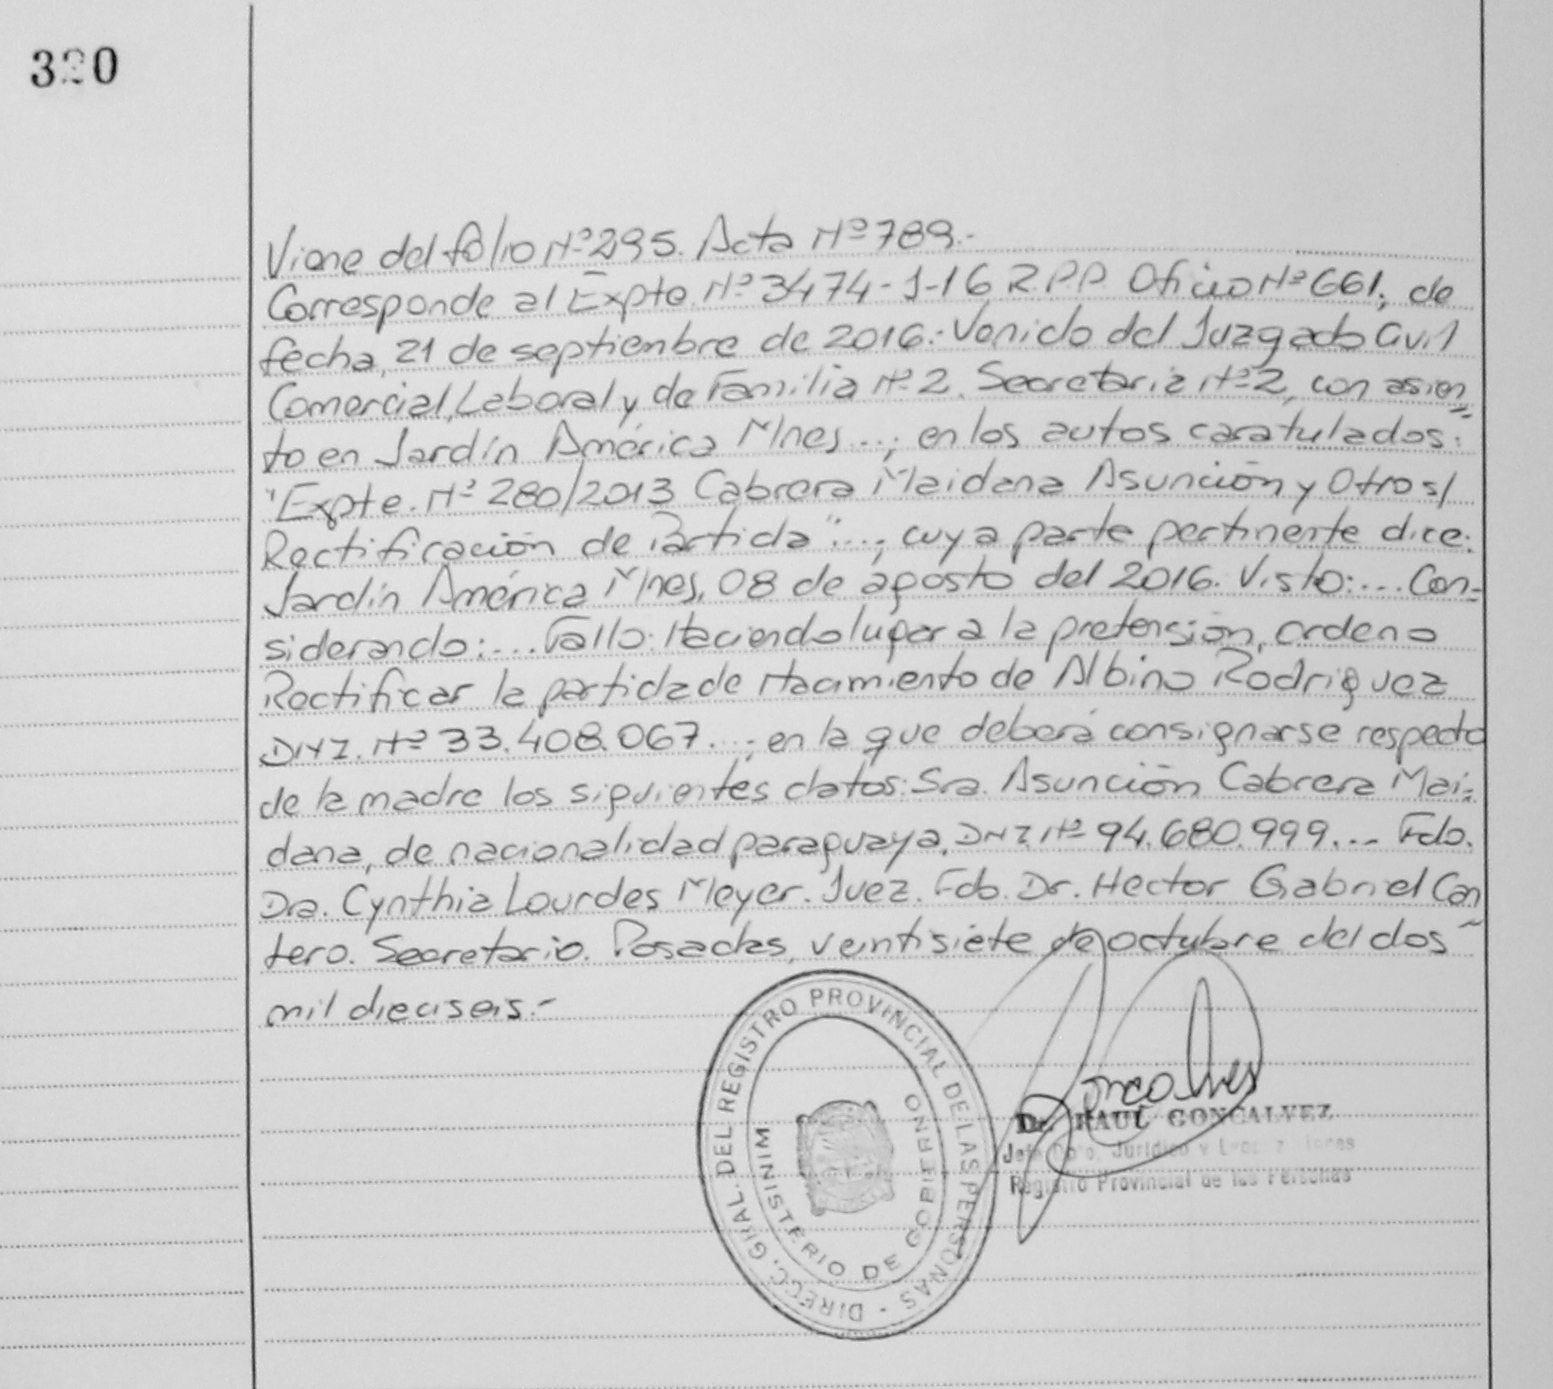 320
Viene del folio Nº295. Acta Nº789.-
Corresponde al Expte. Nº3474-J-16 R.P.P. Oficio Nº661, de
fecha, 21 de septiembre de 2016.- Venido del Juzgado Civil
Comercial, Laboral y de Familia Nº2. Secretaria Nº2, con asien
to en Jardín América Mnes...; en los autos caratulados:
"Expte. Nº 280/2013 Cabrera Maidana Asunción y Otro s/
Rectificación de Partida"...; cuya parte pertinente dice:
Jardín América Mnes, 08 de agosto del 2016. Visto:... Con-
siderando:... Fallo: Haciendo lugar a la pretensión, ordeno
Rectificar la partida de Nacimiento de Albino Rodriguez
DNI. Nº 33.408.067...; en la que deberá consignarse respecto
de la madre los siguientes datos: Sra. Asunción Cabrera Mai-
dana, de nacionalidad paraguaya, DNI Nº 94.680.999... Fdo.
Dra. Cynthia Lourdes Meyer. Juez. Fdo. Dr. Hector Gabriel Can
tero. Secretario. Posadas, veintisiete de octubre del dos
mil dieciseis.-
DIRECC. GRAL. DEL REGISTRO PROVINCIAL DE LAS PERSONAS -
MINISTERIO DE GOBIERNO
Dr. RAUL GONCALVEZ
Jefe Dpto. Jurídico y
Registro Provincial de las Personas